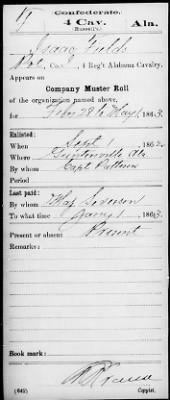 Confederate.
4 Cav.
(Russell's)
Ala.
Isaac Fields
Pvt, Co. , 4 Reg't Alabama Cavalry.
Appears on
Company Muster Roll
of the organization named above,
for Feby 28 to May 1, 1863.
Enlisted:
When Sept 1, 1862.
Where Guntersville Ala
By whom Capt
Period
Last paid:
By whom Maj
To what time Jany 1, 1863.
Present or absent Present
Remarks:
Book mark:
(642)
Copyist.